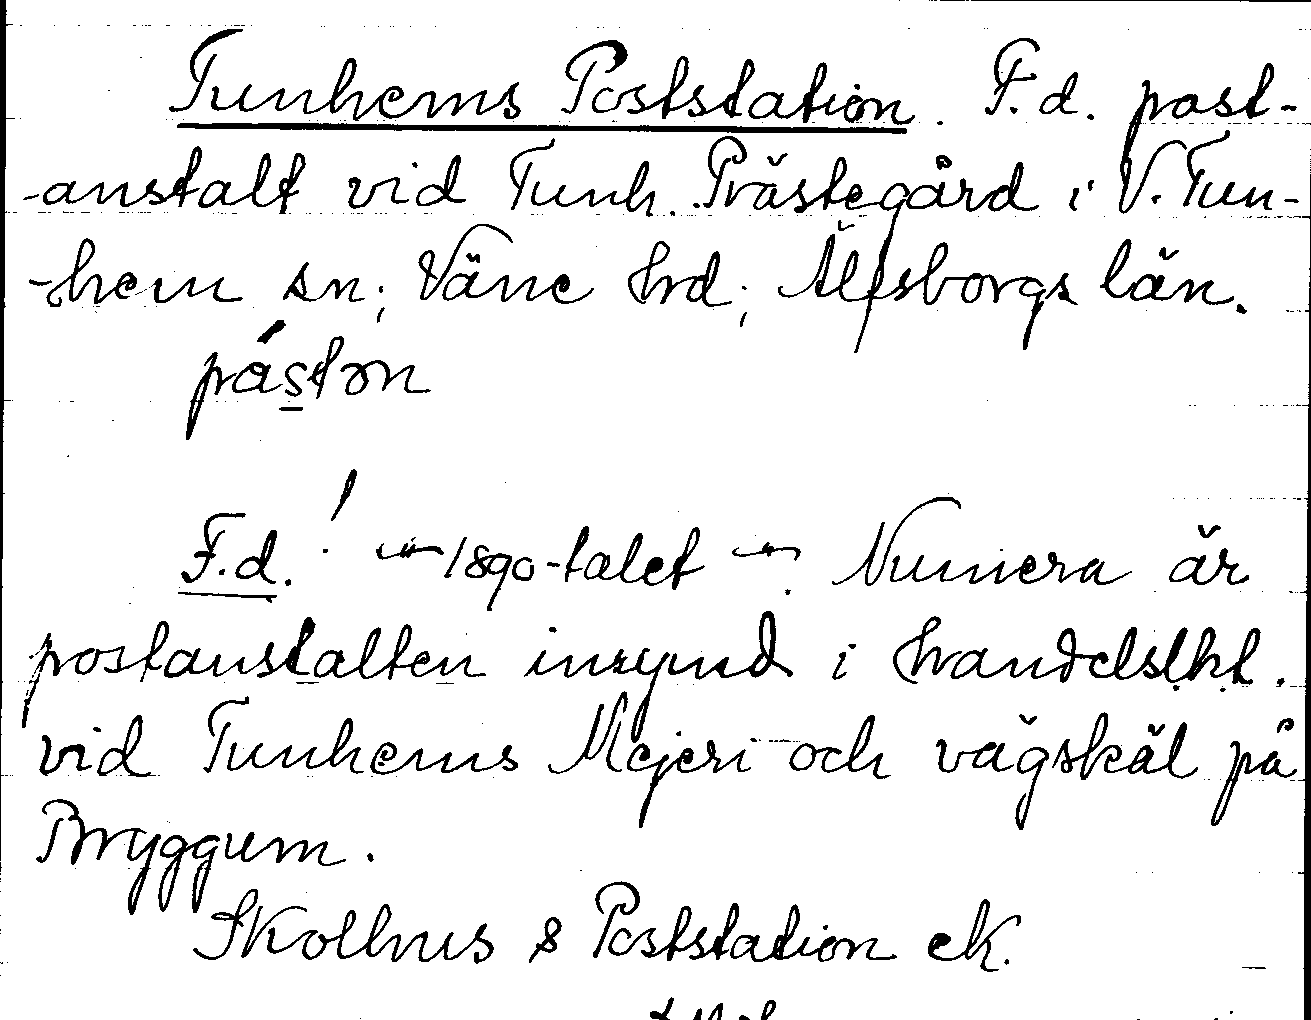 Tunhems Poststation. F.d. post-
-anstalt vid Tunh. Prästegård i V. Tun-
-hem sn; Väne hrd; Älfsborgs län.
påston
F.d.! 1890-talet. Numera är
postanstalten inrymd i handelslht.
vid Tunhems Mejeri och vägskäl på
Bryggum.
Skolhus & Poststation eK.